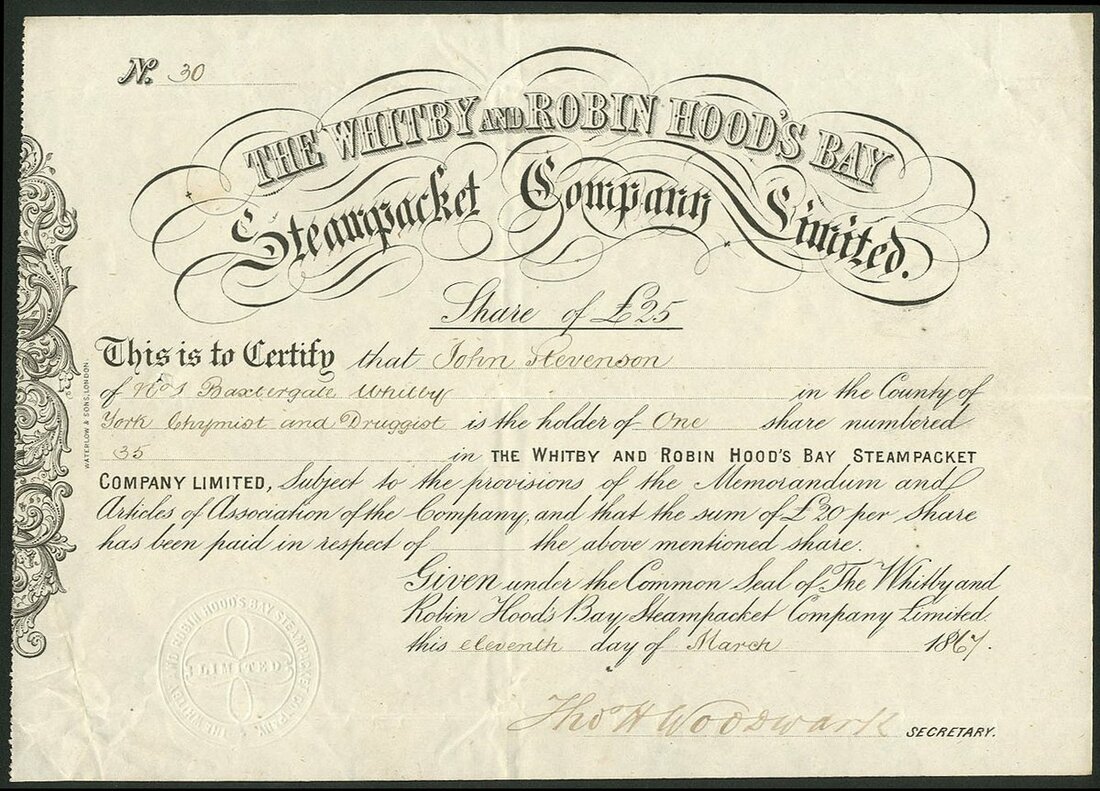 No. 30
THE WHITBY AND ROBIN HOOD'S BAY
Steampacket Company Limited.
Share of £25
This is to Certify that John Stevenson
of No 1 Baxtergate Whitby in the County of
York Chymist and Druggist is the holder of One share numbered
35 in THE WHITBY AND ROBIN HOOD'S BAY STEAMPACKET
COMPANY LIMITED, Subject to the provisions of the Memorandum and
Articles of Association of the Company, and that the sum of £20 per Share
has been paid in respect of the above mentioned share.
Given under the Common Seal of The Whitby and
Robin Hood's Bay Steampacket Company Limited.
this eleventh day of March 1867.
Tho H Woodwark SECRETARY.
WATERLOW & SONS, LONDON.
THE WHITBY AND ROBIN HOOD'S BAY STEAMPACKET COMPANY
LIMITED